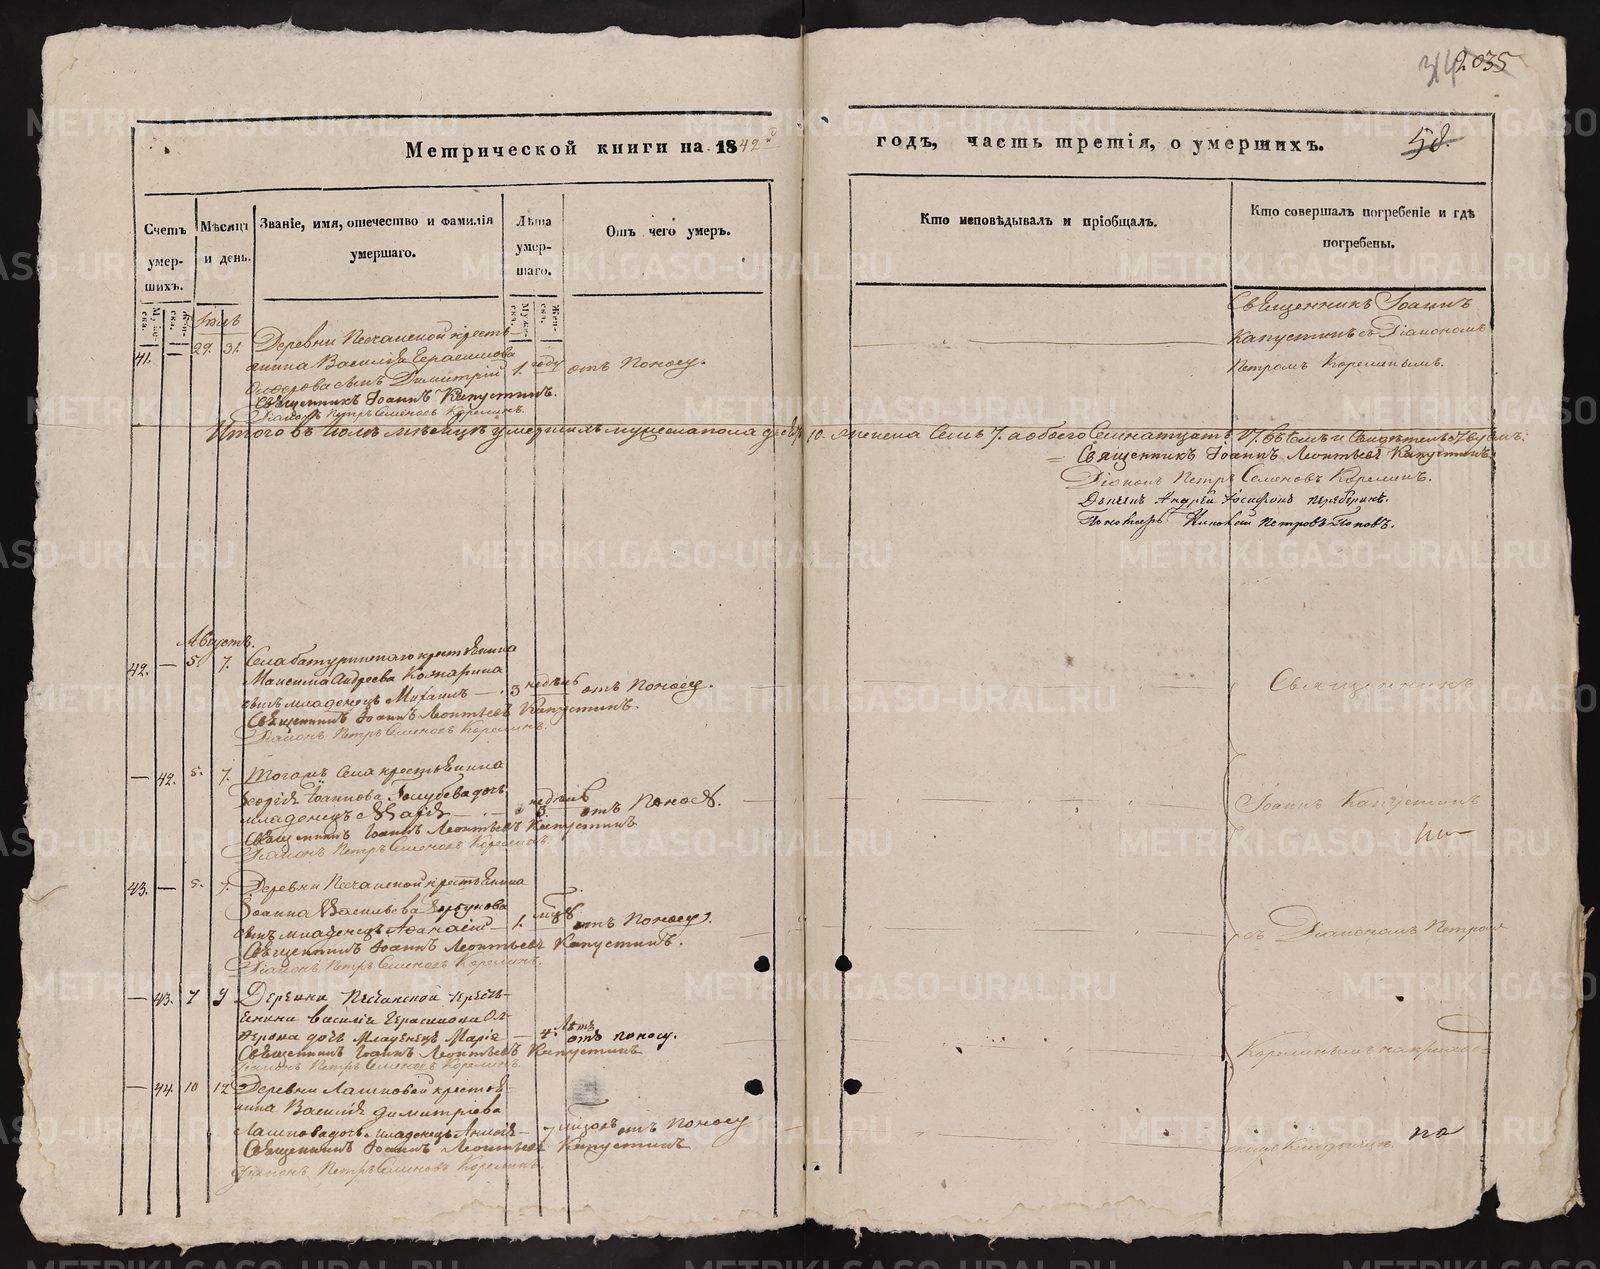 2035
Метрической книги на 1842й
годъ, часть третія, о умершихъ.
58.
Счетъ умер-шихъ.
Мѣсяцъ и день.
Званіе, имя, отечество и фамилія умершаго.
Лѣта умер-шаго.
Отъ чего умеръ.
Кто исповѣдывалъ и пріобщалъ.
Кто совершалъ погребеніе и гдѣ погребены.
Муже-ска.
Жен-ска.
Муже-ска.
Жен-ска.
Іюль
41. — 29. 31.
Деревни Песчанской кресть-
янина Василія Герасимова
сынъ Димитрій 1. году отъ поносу.
Священникъ Іоаннъ Капустинъ.
Діаконъ Петръ Семеновъ Корелинъ.
Священникъ Іоаннъ
Капустинъ съ Діакономъ
Петромъ Корелинымъ.
Итого въ Іюлѣ мѣсяцѣ умершихъ мужеска пола 10. женска семь 7. а обоего семнатцать 17. въ семъ и свидѣтельствуемъ:
Священникъ Іоаннъ Леонтьевъ Капустинъ.
Діаконъ Петръ Семеновъ Корелинъ.
Дьячекъ Андрей Іосифовъ
Пономарь Петровъ Поповъ.
Августъ.
42. — 5. 7. Села Батуринскаго крестьянина
Максима Андреева Комарина
сынъ младенецъ Михаилъ — 3 недѣль отъ поносу.
Священникъ Іоаннъ Леонтьевъ Капустинъ.
Діаконъ Петръ Семеновъ Корелинъ.
Священникъ
— 42. 5. 7. Тогожъ села крестьянина
Георгія Іоаннова Голубева дочь
младенецъ — недѣль отъ поноса.
Священникъ Іоаннъ Леонтьевъ Капустинъ
Діаконъ Петръ Семеновъ Корелинъ.
Іоаннъ Капустинъ
43. — 5. 7. Деревни Песчанской крестьянина
Іоанна Васильева
сынъ младенецъ Афанасій — 1. мѣс. отъ поносу.
Священникъ Іоаннъ Леонтьевъ Капустинъ.
Діаконъ Петръ Семеновъ Корелинъ.
съ Діакономъ Петромъ
— 43. 7 9 Деревни Песчанской кресть-
янина Василія Герасимова
дочь младенецъ Марія — 4. лѣтъ отъ поносу.
Священникъ Іоаннъ Леонтьевъ Капустинъ
Діаконъ Петръ Семеновъ Корелинъ.
Корелинымъ на приход-
— 44 10 12 Деревни крестья-
нина Василія Димитріева
дочь младенецъ — 7 отъ поносу
Священникъ Іоаннъ Леонтьевъ Капустинъ
Діаконъ Петръ Семеновъ Корелинъ.
скомъ кладбищѣ.
METRIKI.GASO-URAL.RU